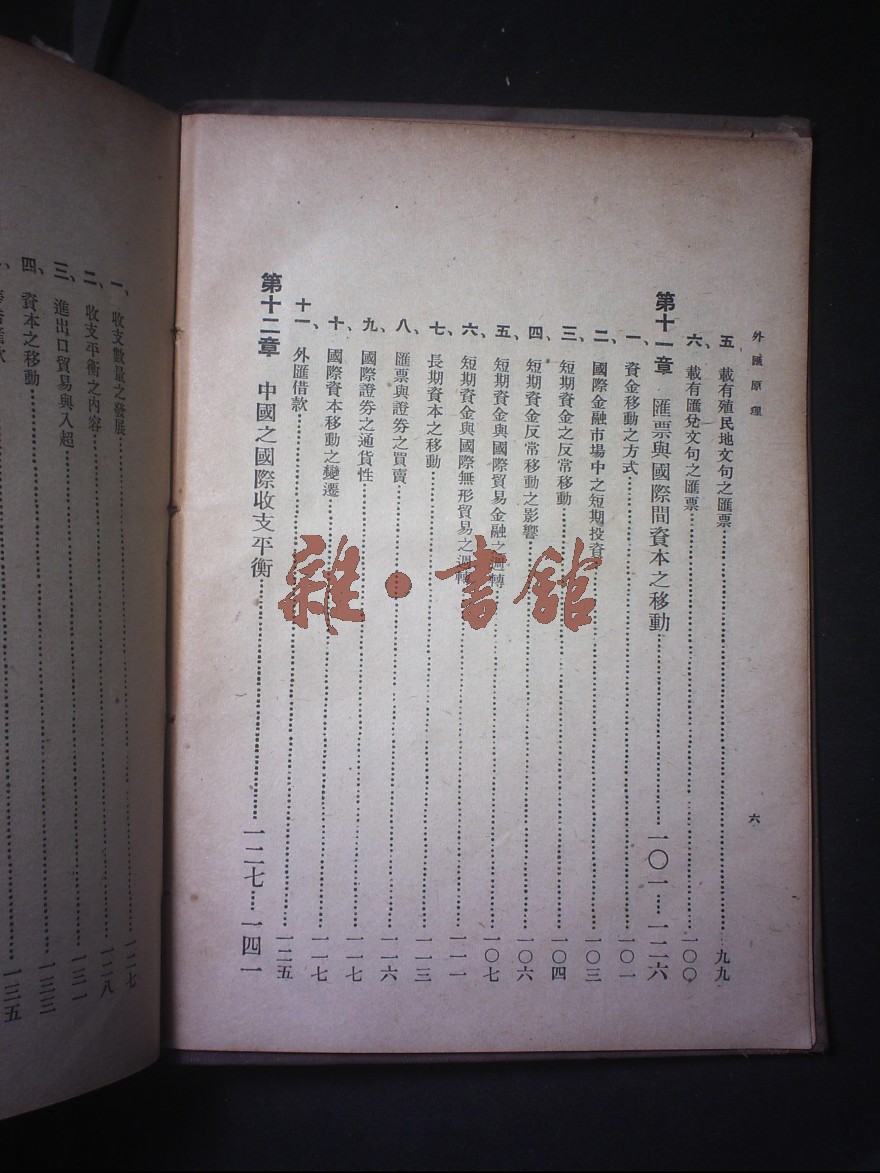 外匯原理
六
五、載有殖民地文句之匯票……九九
六、載有匯兌文句之匯票……一〇〇
第十一章 匯票與國際間資本之移動……一〇一—一二六
一、資金移動之方式……一〇一
二、國際金融市場中之短期投資……一〇三
三、短期資金之反常移動……一〇四
四、短期資金反常移動之影響……一〇六
五、短期資金與國際貿易金融之週轉……一〇七
六、短期資金與國際無形貿易之週轉……一一一
七、長期資本之移動……一一三
八、匯票與證券之買賣……一一六
九、國際證券之通貨性……一一七
十、國際資本移動之變遷……一一七
十一、外匯借款……一二五
第十二章 中國之國際收支平衡……一二七—一四一
一、收支數量之發展……一二七
二、收支平衡之內容……一二八
三、進出口貿易與入超……一三一
四、資本之移動……一三三
一三五
雜·書館